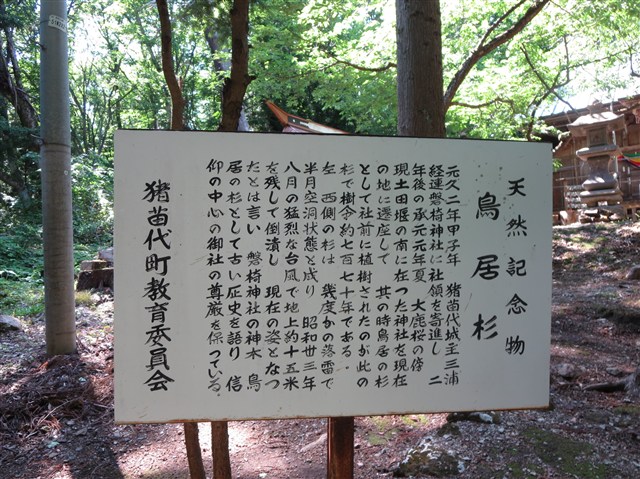 天然記念物
鳥居杉
元久二年甲子年 猪苗代城主三浦
経連磐椅神社に社領を寄進し 二
年後の承元元年夏 大鹿桜の傍
現土田堰の南に在つた神社を現在
の地に遷座して 其の時鳥居の杉
として社前に植樹されたのが此の
杉で樹令約七百七十年である。
左 西側の杉は 幾度かの落雷で
半月空洞状態と成り 昭和卅三年
八月の猛烈な台風で地上約十五米
を残して倒潰し 現在の姿となつ
たとは言い 磐椅神社の神木 鳥
居の杉として古い歴史を語り 信
仰の中心の御社の尊厳を保っている。
猪苗代町教育委員会